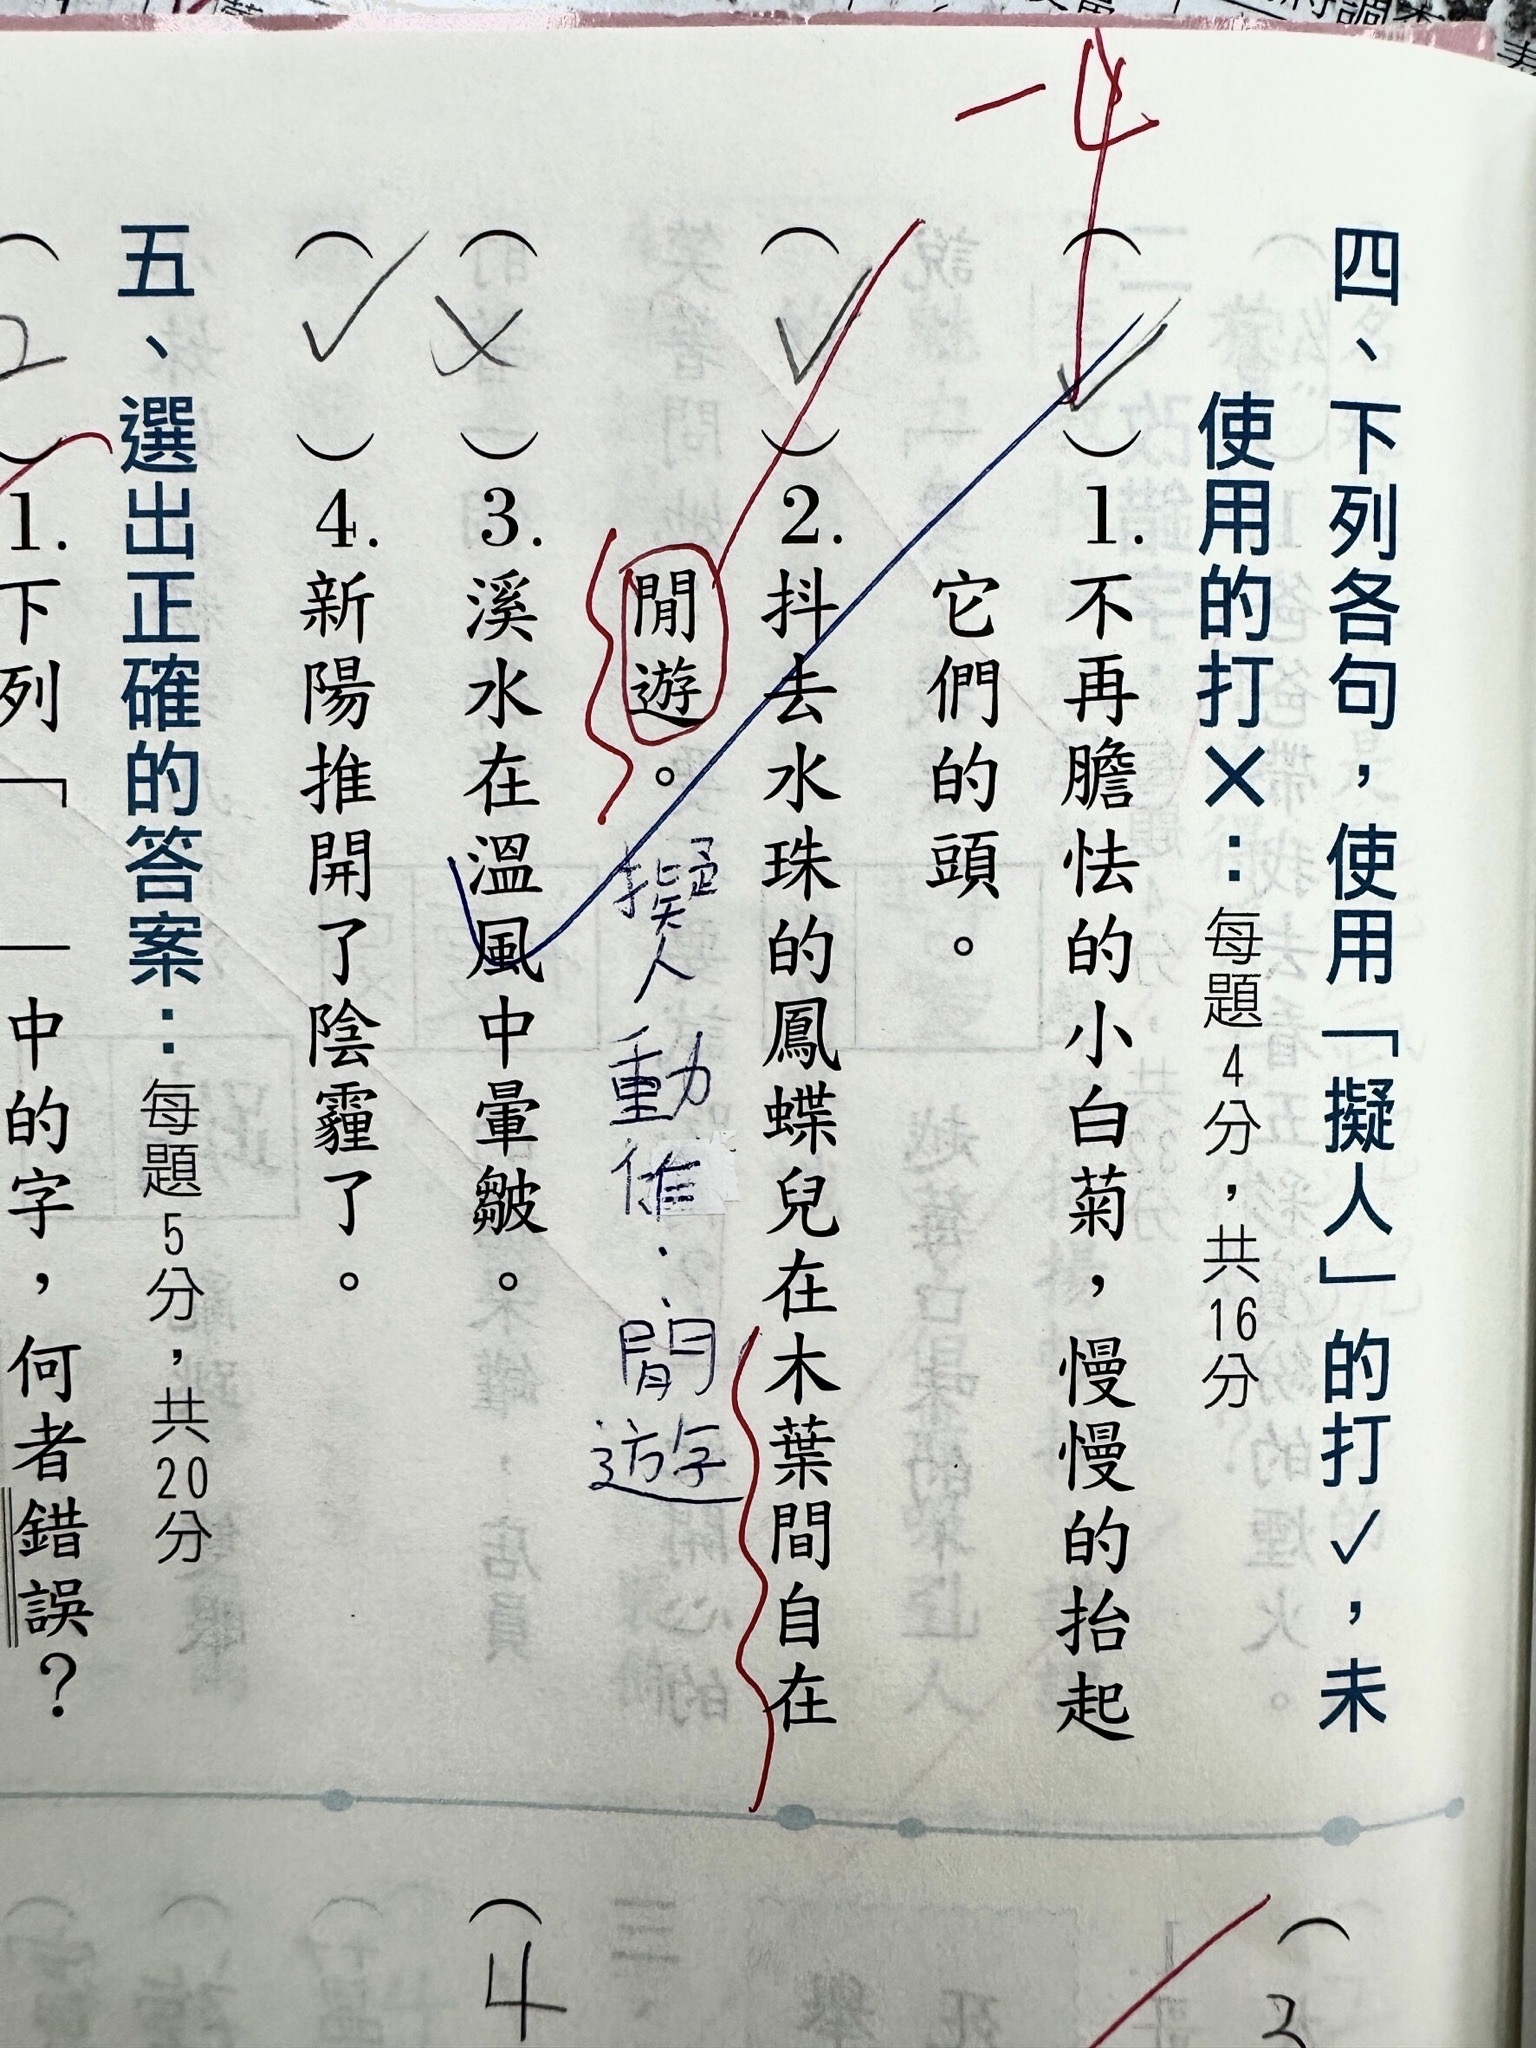 -4
四、下列各句，使用「擬人」的打✓，未
使用的打✕：每題4分，共16分
（✓）1.不再膽怯的小白菊，慢慢的抬起
它們的頭。
（✓）2.抖去水珠的鳳蝶兒在木葉間自在
閒遊。
擬人動作：閒遊
（✕）3.溪水在溫風中暈皺。
（✓）4.新陽推開了陰霾了。
五、選出正確的答案：每題5分，共20分
（2）1.下列「—中的字，何者錯誤？
（
（4